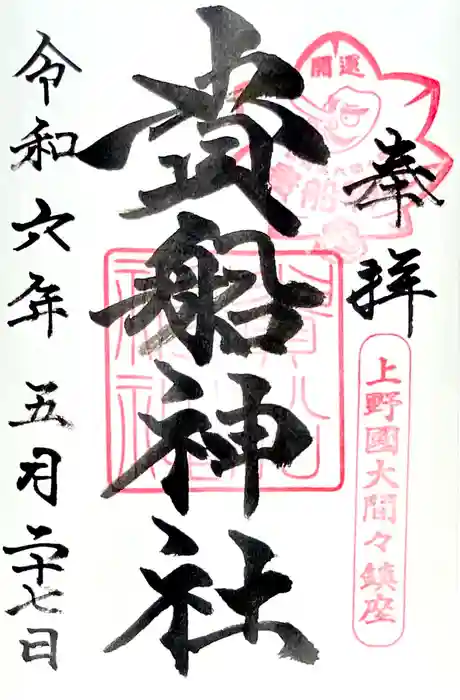 奉拝
開運
上野國大間々鎮座
貴船神社
令和六年五月二十七日